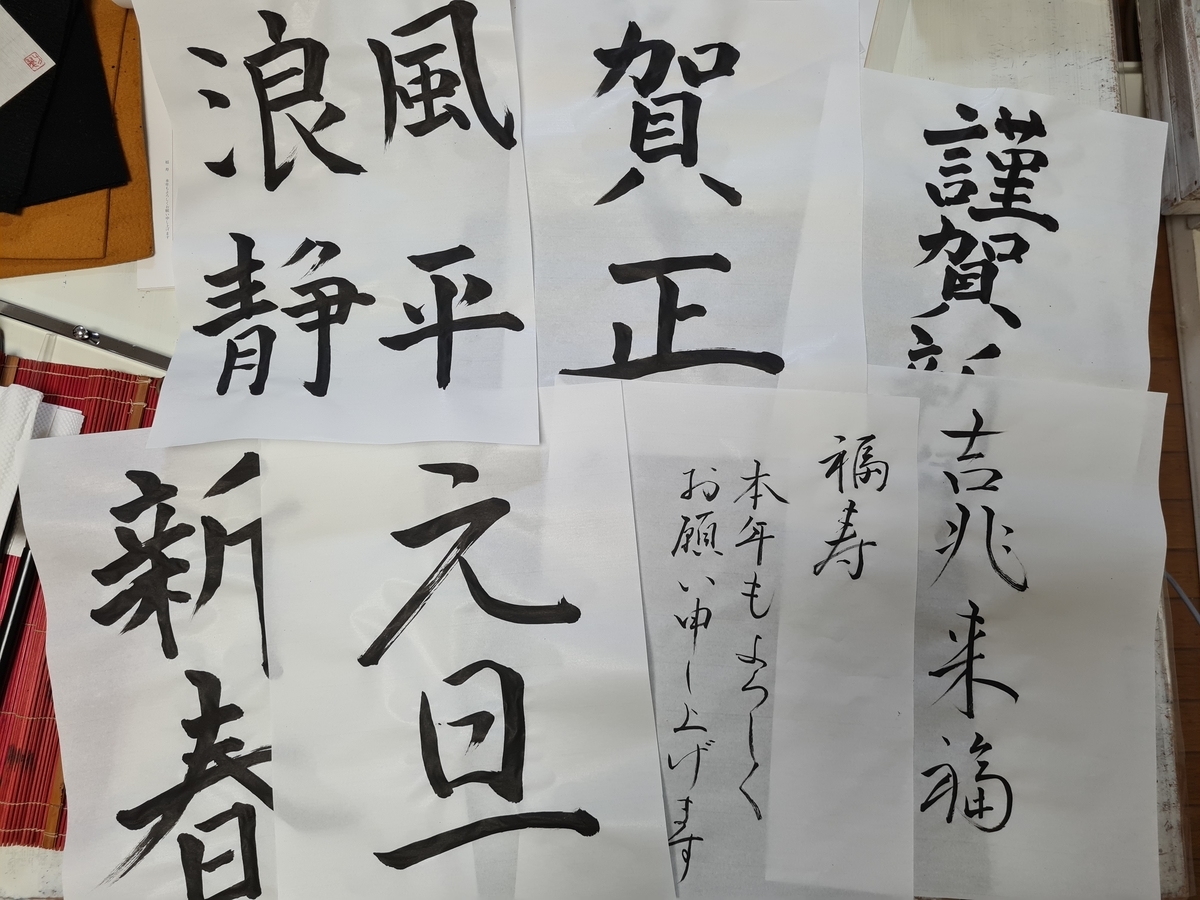 風平
浪静
賀正
謹賀新
新春
元旦
福寿
本年もよろしく
お願い申し上げます
吉兆来福